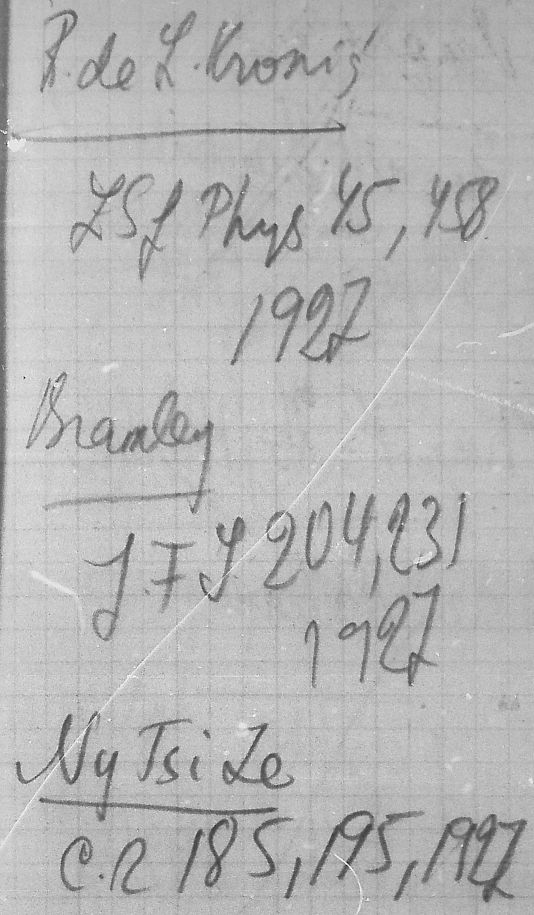 R. de L. Kronig
ZS f Phys 45, 458
1927
Bramley
J. F. I. 204, 231
1927
Ny Tsi Ze
C. R 185, 195, 1927